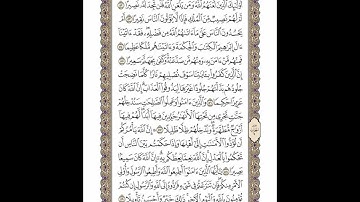 أُولَٰئِكَ الَّذِينَ لَعَنَهُمُ اللَّهُ وَمَن يَلْعَنِ اللَّهُ فَلَن تَجِدَ لَهُ نَصِيرًا ۝ أَمْ
لَهُمْ نَصِيبٌ مِّنَ الْمُلْكِ فَإِذًا لَّا يُؤْتُونَ النَّاسَ نَقِيرًا ۝ أَمْ
يَحْسُدُونَ النَّاسَ عَلَىٰ مَا آتَاهُمُ اللَّهُ مِن فَضْلِهِ فَقَدْ آتَيْنَا
آلَ إِبْرَاهِيمَ الْكِتَابَ وَالْحِكْمَةَ وَآتَيْنَاهُم مُّلْكًا عَظِيمًا ۝
فَمِنْهُم مَّنْ آمَنَ بِهِ وَمِنْهُم مَّن صَدَّ عَنْهُ وَكَفَىٰ بِجَهَنَّمَ سَعِيرًا ۝
إِنَّ الَّذِينَ كَفَرُوا بِآيَاتِنَا سَوْفَ نُصْلِيهِمْ نَارًا كُلَّمَا نَضِجَتْ
جُلُودُهُم بَدَّلْنَاهُمْ جُلُودًا غَيْرَهَا لِيَذُوقُوا الْعَذَابَ إِنَّ اللَّهَ كَانَ
عَزِيزًا حَكِيمًا ۝ وَالَّذِينَ آمَنُوا وَعَمِلُوا الصَّالِحَاتِ سَنُدْخِلُهُمْ
جَنَّاتٍ تَجْرِي مِن تَحْتِهَا الْأَنْهَارُ خَالِدِينَ فِيهَا أَبَدًا لَّهُمْ فِيهَا
أَزْوَاجٌ مُّطَهَّرَةٌ وَنُدْخِلُهُمْ ظِلًّا ظَلِيلًا ۝ إِنَّ اللَّهَ يَأْمُرُكُمْ
أَن تُؤَدُّوا الْأَمَانَاتِ إِلَىٰ أَهْلِهَا وَإِذَا حَكَمْتُم بَيْنَ النَّاسِ أَن
تَحْكُمُوا بِالْعَدْلِ إِنَّ اللَّهَ نِعِمَّا يَعِظُكُم بِهِ إِنَّ اللَّهَ كَانَ سَمِيعًا
بَصِيرًا ۝ يَا أَيُّهَا الَّذِينَ آمَنُوا أَطِيعُوا اللَّهَ وَأَطِيعُوا الرَّسُولَ وَأُولِي
الْأَمْرِ مِنكُمْ فَإِن تَنَازَعْتُمْ فِي شَيْءٍ فَرُدُّوهُ إِلَى اللَّهِ وَالرَّسُولِ إِن كُنتُمْ
تُؤْمِنُونَ بِاللَّهِ وَالْيَوْمِ الْآخِرِ ذَٰلِكَ خَيْرٌ وَأَحْسَنُ تَأْوِيلًا ۝